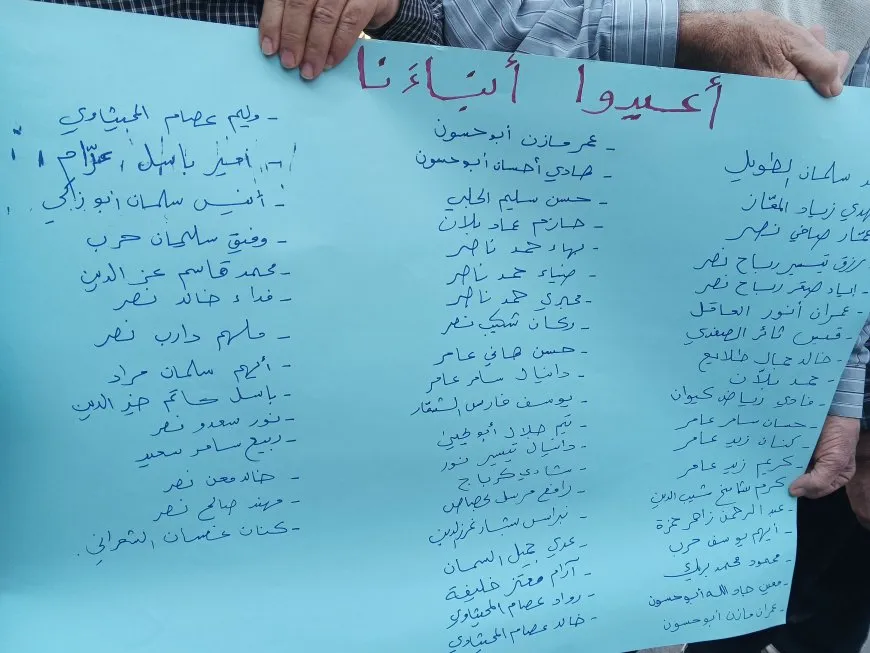 أعيدوا أبناءَنا
سلمان الطويل
زياد المغّاز
عمّار صافي نصر
رزق تيسير رباح نصر
- اياد صقر رباح نصر
- عمران أنور العاقل
- قيس ثائر الصفدي
- خالد جمال طلايع
- حمد بلّان
- فادي رياض كيوان
- حسان سامر عامر
- كنان زيد عامر
- كريم زيد عامر
- كرم شامخ شيب الدين
- عبد الرحمن زاهر حمزة
- أيهم يوسف حرب
- محمود محمد بربك
- معن جاد الله أبو حسون
- عمران مازن أبو حسون
- عمر مازن أبو حسون
- هادي أحسان أبو حسون
- حسن سليم الحلبي
- حازم عماد بلان
- بهاء حمد ناصر
- ضياء حمد ناصر
- مجري حمد ناصر
- ركان شكيب نصر
- حسن هاني عامر
- دانيال سامر عامر
- يوسف فارس الشعّار
- تيم طلال أبو لحين
- دانيال تيسير نور
- شادي كرباج
- رافع مرسل لحصاص
- نبراس بشار عزالدين
- عدي جميل السمان
- آرام معتز خليفة
- رواد عصام المحيثاوي
- خالد عصام المحيثاوي
- وليم عصام المحيثاوي
- أمير باسل عزّام
- أنيس سلمان ابو زاكي
- وفيق سليمان حرب
- محمد قاسم عز الدين
- فداء خالد نصر
- ملهم دارب نصر
- أيهم سلمان مراد
- باسل حاتم خير الدين
- نور سعدو نصر
- ربيع سامر سعيد
- خالد معن نصر
- مهند صالح نصر
- كنان غسان الشعراني.